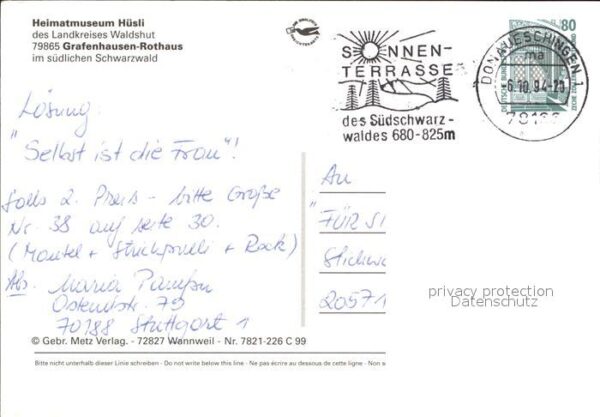 Heimatmuseum Hüsli
des Landkreises Waldshut
79865 Grafenhausen-Rothaus
im südlichen Schwarzwald
SONNEN-
TERRASSE
des Südschwarz-
waldes 680-825m
DONAUESCHINGEN 1
ma
-6.10.94-20
80
DEUTSCHE BUNDESPOST
Lösung:
"Selbst ist die Frau"!
Falls 2. Preis - bitte Größe
Nr. 38 auf Seite 30.
(Mantel + Strickpulli + Rock)
Abs. Maria
Ostendstr. 79
70188 Stuttgart 1
An
"FÜR SI
20571
privacy protection
Datenschutz
© Gebr. Metz Verlag. - 72827 Wannweil - Nr. 7821-226 C 99
Bitte nicht unterhalb dieser Linie schreiben - Do not write below this line - Ne pas écrire au dessous de cette ligne - Non s